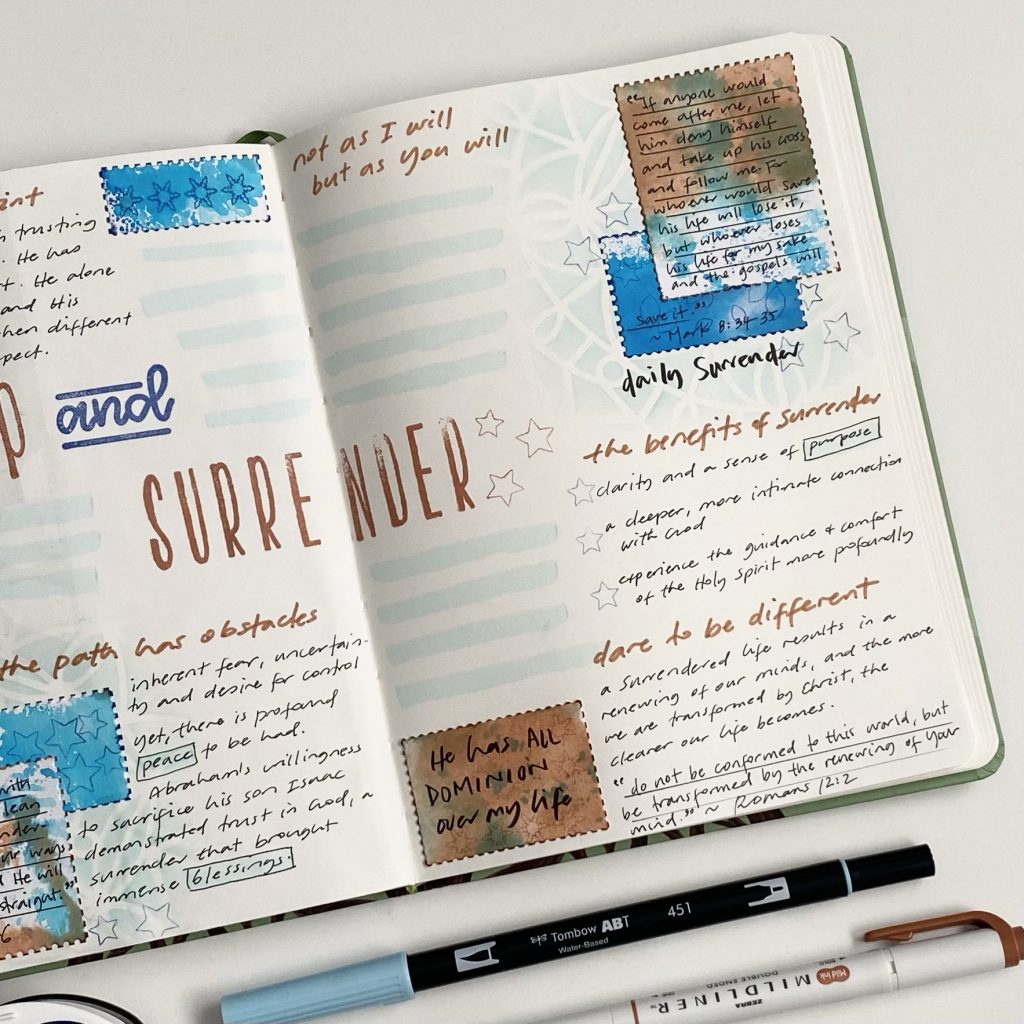 trusting
. He has
. He alone
and His
when different
pect.
and
SURRENDER
the path has obstacles
inherent fear, uncertain-
ty and desire for control
yet, there is profound
peace to be had.
Abraham's willingness
to sacrifice his son Isaac
demonstrated trust in God, a
surrender that brought
immense blessings.
with
lean
ways
He will
straight."
6
not as I will
but as you will
"If anyone would
come after me, let
him deny himself
and take up his cross
and follow me. For
whoever would save
his life will lose it,
but whoever loses
his life for my sake
and the gospels will
save it."
~ Mark 8:34-35
daily Surrender
the benefits of surrender
clarity and a sense of purpose
a deeper, more intimate connection
with God
experience the guidance & comfort
of the Holy Spirit more profoundly
dare to be different
a surrendered life results in a
renewing of our minds, and the more
we are transformed by Christ, the
clearer our life becomes.
"do not be conformed to this world, but
be transformed by the renewing of your
mind." ~ Romans 12:2
He has ALL
DOMINION
over my life
Tombow ABT 451
Water-Based
Mild ink
MILDLINER
DOUBLE ENDED
ZEBRA